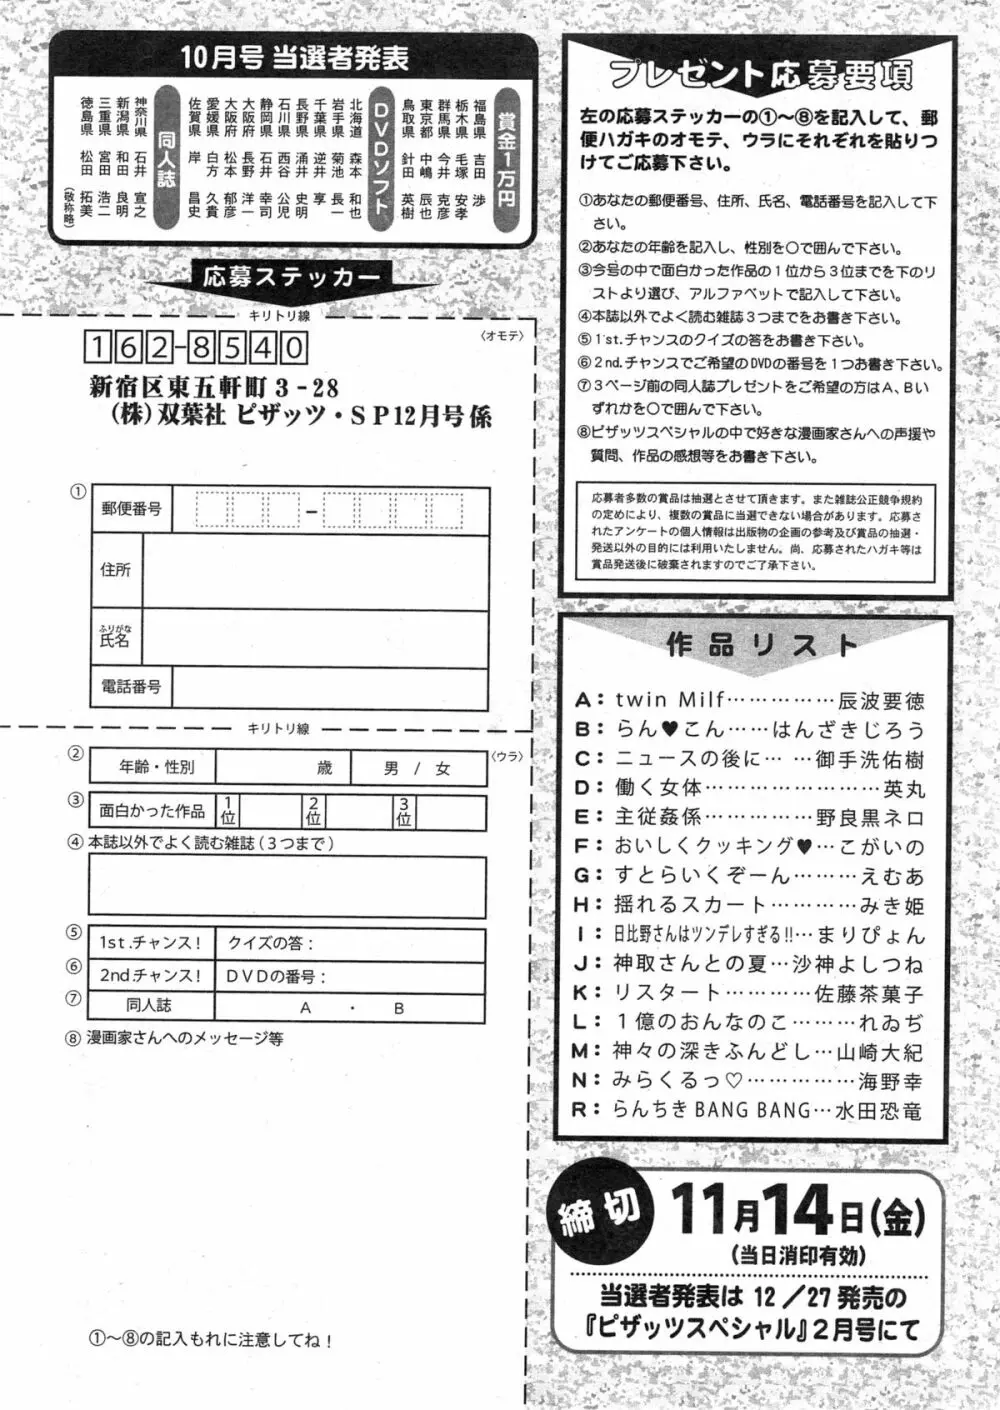 10月号 当選者発表
賞金1万円
福島県 吉田 渉
栃木県 毛塚 安孝
群馬県 今井 克彦
東京都 中嶋 辰也
鳥取県 針田 英樹
DVDソフト
北海道 森本 和也
岩手県 菊池 長一
千葉県 逆井 享
長野県 涌井 史明
石川県 西谷 公児
静岡県 石井 幸司
大阪府 長野 洋一
大阪府 松本 郁彦
愛媛県 白方 久貴
佐賀県 岸 昌史
同人誌
神奈川県 石井 宣之
新潟県 和田 良明
三重県 宮田 浩二
徳島県 松田 拓美
(敬称略)
応募ステッカー
キリトリ線
〈オモテ〉
162-8540
新宿区東五軒町3-28
(株)双葉社 ピザッツ・SP12月号係
①
郵便番号
住所
ふりがな
氏名
電話番号
キリトリ線
〈ウラ〉
② 年齢・性別 歳 男 / 女
③ 面白かった作品 1位 2位 3位
④ 本誌以外でよく読む雑誌(3つまで)
⑤ 1st.チャンス! クイズの答:
⑥ 2ndチャンス! DVDの番号:
⑦ 同人誌 A ・ B
⑧ 漫画家さんへのメッセージ等
①〜⑧の記入もれに注意してね!
プレゼント応募要項
左の応募ステッカーの①〜⑧を記入して、郵
便ハガキのオモテ、ウラにそれぞれを貼りつ
けてご応募下さい。
①あなたの郵便番号、住所、氏名、電話番号を記入して下
さい。
②あなたの年齢を記入し、性別を〇で囲んで下さい。
③今号の中で面白かった作品の1位から3位までを下のリ
ストより選び、アルファベットで記入して下さい。
④本誌以外でよく読む雑誌3つまでをお書き下さい。
⑤1st.チャンスのクイズの答をお書き下さい。
⑥2nd.チャンスでご希望のDVDの番号を1つお書き下さい。
⑦3ページ前の同人誌プレゼントをご希望の方はA、Bい
ずれかを〇で囲んで下さい。
⑧ピザッツスペシャルの中で好きな漫画家さんへの声援や
質問、作品の感想等をお書き下さい。
応募者多数の賞品は抽選とさせて頂きます。また雑誌公正競争規約
の定めにより、複数の賞品に当選できない場合があります。応募さ
れたアンケートの個人情報は出版物の企画の参考及び賞品の抽選・
発送以外の目的には利用いたしません。尚、応募されたハガキ等は
賞品発送後に破棄されますのでご了承下さい。
作品リスト
A：twin Milf……………辰波要徳
B：らん♥こん……はんざきじろう
C：ニュースの後に……御手洗佑樹
D：働く女体……………………英丸
E：主従姦係……………野良黒ネロ
F：おいしくクッキング♥…こがいの
G：すとらいくぞーん………えむあ
H：揺れるスカート…………みき姫
I：日比野さんはツンデレすぎる!!…まりぴょん
J：神取さんとの夏…沙神よしつね
K：リスタート…………佐藤茶菓子
L：1億のおんなのこ………れゐぢ
M：神々の深きふんどし…山崎大紀
N：みらくるっ♡……………海野幸
R：らんちきBANG BANG…水田恐竜
締切
11月14日(金)
(当日消印有効)
当選者発表は12/27発売の
『ピザッツスペシャル』2月号にて